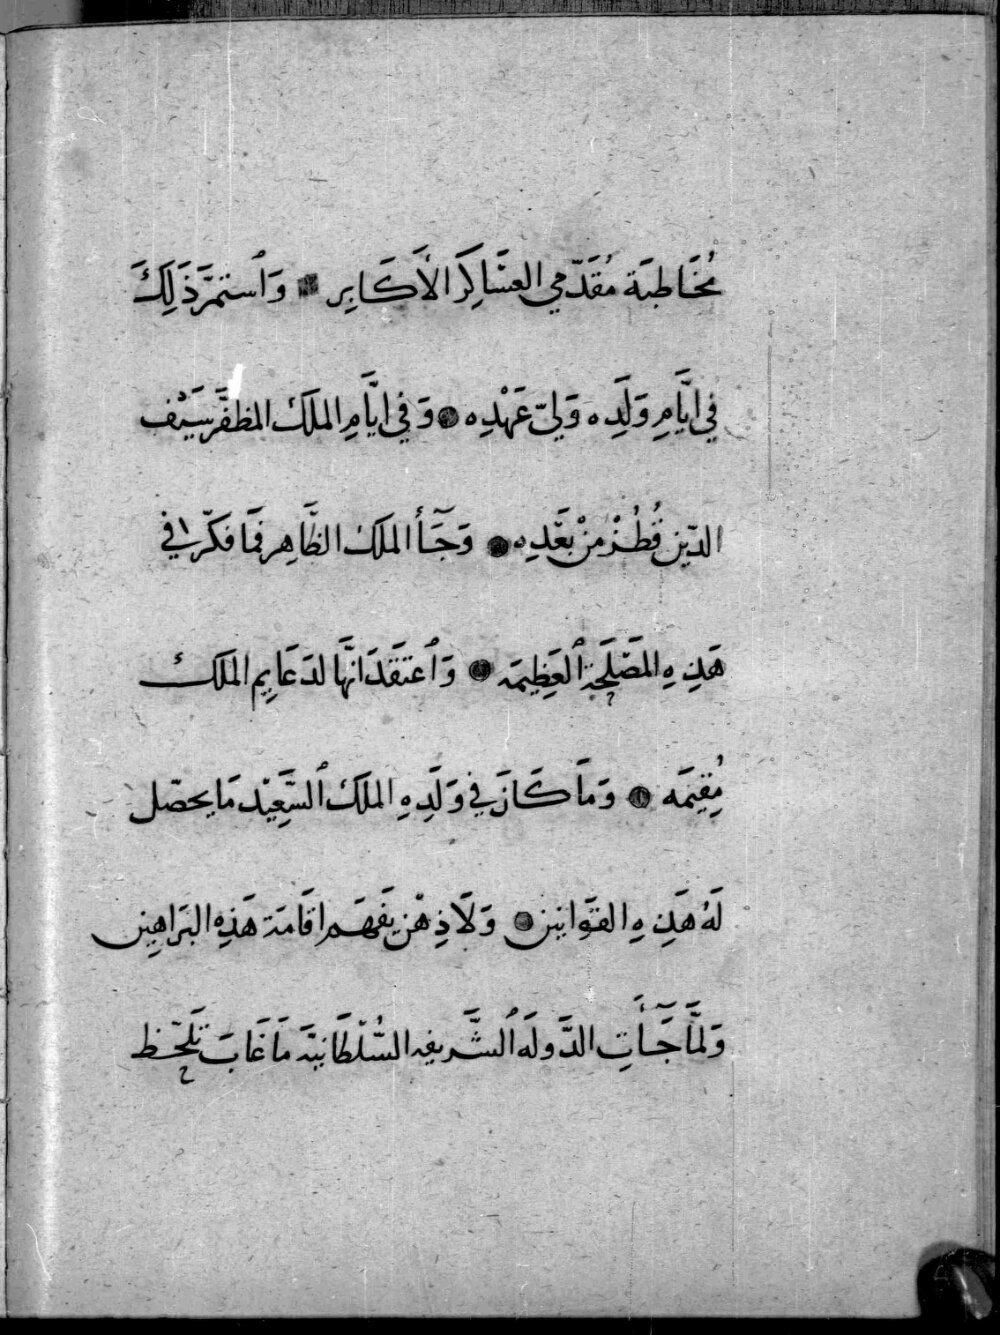 مُخَاطبَة مُقَدّمي العسَاكِر الأَكَابِر ۞ وَٱستمَرَّ ذَلِكَ
في ايَّامِ وَلَدِه وَليّ عَهْدِه ۞ وَفي ايَّامِ الملَك المظفَّر سَيْف
الدّين قُطُزْ مِنْ بَعْدِه ۞ وَجَآأ الملَك الظَّاهِر فمَا فَكّر في
هَذِهِ المَصْلَحَة ٱلعَظِيمَه ۞ وَٱعتَقَدَ انَّهَا لدَعَايِم الملَك
مُقِيمَه ۞ وَمَا كَانَ في وَلَدِهِ الملَك ٱلسَّعِيْد مَا يحصّل
لَهُ هَذِهِ القوَانين ۞ وَلَا ذِهْن يَفهَم اقَامَة هَذِهِ البَراهِين
وَلمَّا جَآأَتِ الدَّولَه ٱلشَّريفه السُّلْطَانيَّه مَا غَابَ تَلحّظ